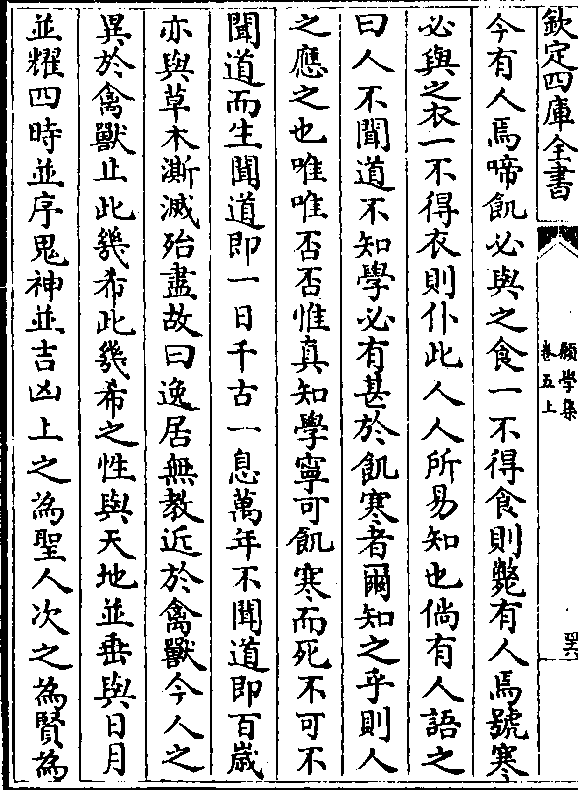 欽定四庫全書
願學集
卷五上
今有人焉啼飢必與之食一不得食則斃有人焉號寒
必與之衣一不得衣則仆此人人所易知也倘有人語之
曰人不聞道不知學必有甚於飢寒者爾知之乎則人
之應之也唯唯否否惟真知學寧可飢寒而死不可不
聞道而生聞道即一日千古一息萬年不聞道即百歲
亦與草木澌滅殆盡故曰逸居無教近於禽獸今人之
異於禽獸止此幾希此幾希之性與天地並垂與日月
並耀四時並序鬼神並吉凶上之為聖人次之為賢為